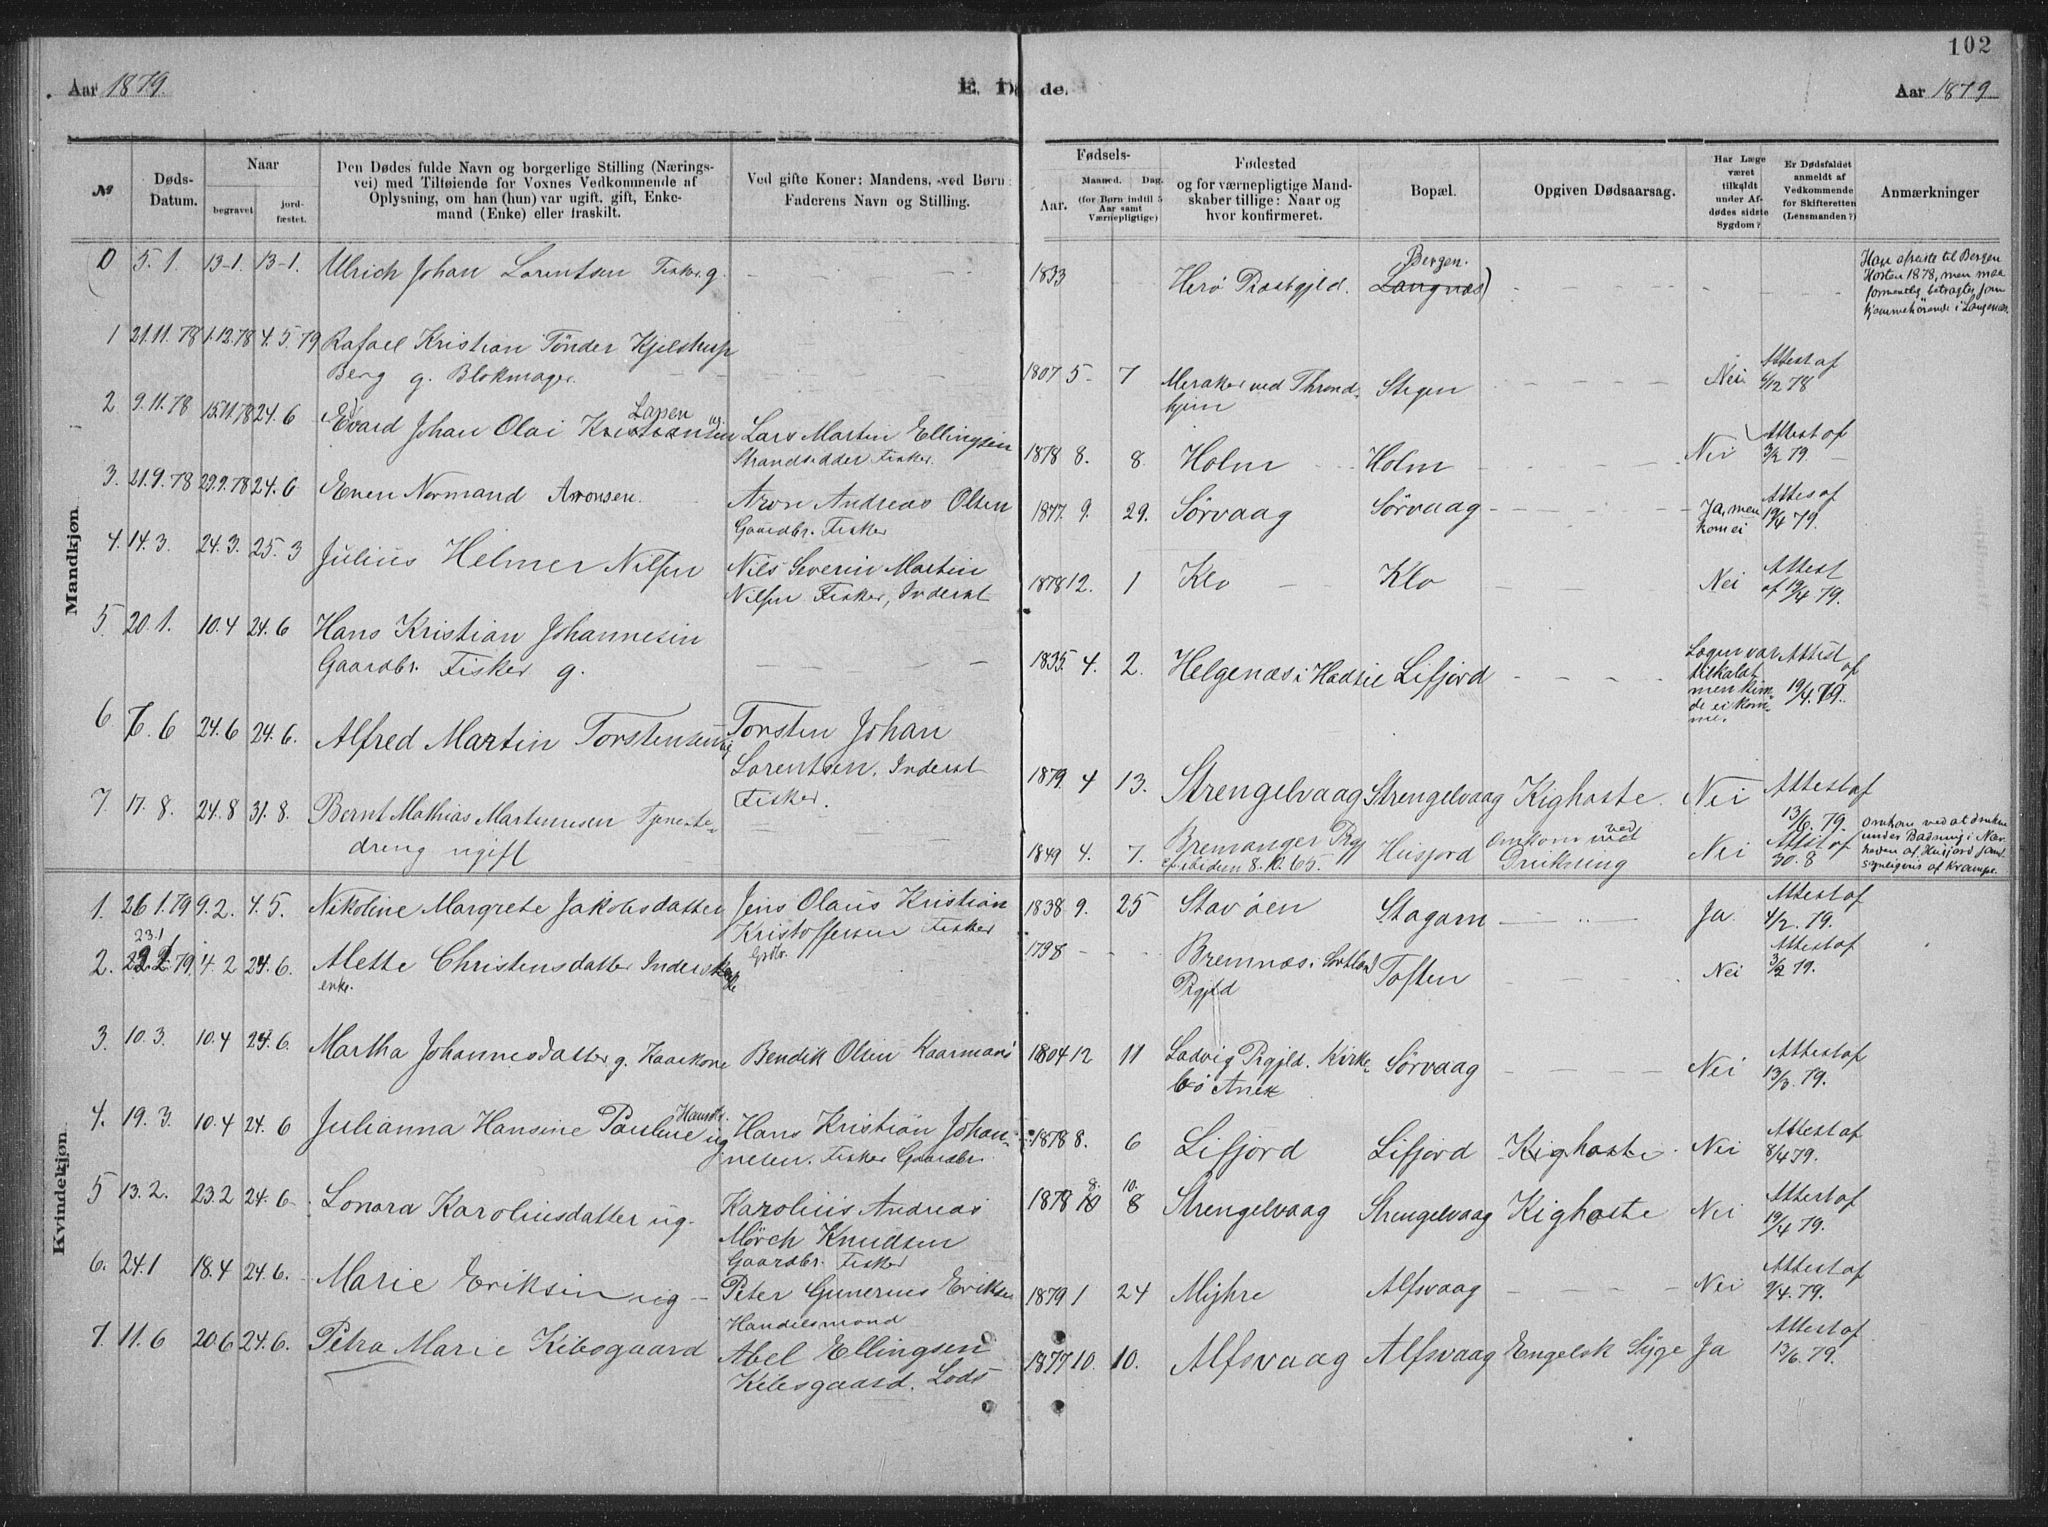 102
Aar 1879.
E. Døde.
Aar 1879
№
Døds-Datum.
Naar
begravet
jordfæstet.
Den Dødes fulde Navn og borgerlige Stilling (Næringsvei) med Tilføiende for Voxnes Vedkommende af Oplysning, om han (hun) var ugift, gift, Enkemand (Enke) eller fraskilt.
Ved gifte Koner: Mandens, -ved Børn: Faderens Navn og Stilling.
Fødsels-
Aar.
Maaned. Dag.
(for Børn indtil 5 Aar samt Værnepligtige)
Fødested
og for værnepligtige Mandskaber tillige: Naar og hvor konfirmeret.
Bopæl.
Opgiven Dødsaarsag.
Har Læge været tilkaldt under Afdødes sidste Sygdom?
Er Dødsfaldet anmeldt af Vedkommende for Skifteretten (Lensmanden?)
Anmærkninger
Mandkjøn.
0 5.1. 13-1. 13-1. Ulrich Johan Lorentsen Fisker g. 1833 Herø Præstgjld. Bergen. Langnæs)
Høsten 1878, men maa
1 21.11.78 1.12.78 4.5.79 Rafael Kristian Tönder Kjelstrup
Berg g. Blokmager. 1807 5 7 Meraker ved Thrond-
hjem Stegen Nei Attest af
6/12 78
2 9.11.78 15.11.78 24.6 Edvard Johan Olai Kristiansen Larsen ug Lars Martin Ellingsen
Strandsidder Fisker. 1878 8. 8. Holm Holm Nei Attest af
3/2 79.
3. 21.9.78 29.9.78 24.6 Even Normand Aronsen. Aron Andreas Olsen
Gaardbr. Fisker 1877. 9. 29. Sörvaag Sörvaag Ja, men
kom ei Attest af
19/4 79.
4. 14.3. 24.3. 25.3 Julius Helmer Nilsen Nils Severin Martin
Nilsen Fisker, Inderst 1878 12. 1 Klo Klo Nei Attest
af 19/4 79.
5. 20.1. 10.4 24.6 Hans Kristian Johannesen
Gaardbr. Fisker g. 1835 4. 2. Helgenæs i Hadsel Lifjord Lægen var
tilkaldt
men kun-
de ei kom-
me. Attest af
19/4.79.
6 7.6 24.6 24.6. Alfred Martin Torstensen ug Torsten Johan
Lorentsen. Inderst
Fisker. 1879 4 13. Strengelvaag Strengelvaag Kighoste. Nei Attest af
13/6.79.
7. 17.8. 24.8 31.8. Bernt Mathias Martinusen Tjeneste-
dreng ugift 1849 4. 7. Bremanger Prgj
ibidem 8.10.65. Husjord Omkom ved
Drukning Nei Attest af
30.8 Omkom ved at drukne
under Badning i
Kvindekjøn.
1. 26.1.79 9.2. 4.5. Nikoline Margrete Jakobsdatter Jens Olaus Kristian
Kristoffersen Fisker 1838 9. 25 Stavöen Stagarn Ja. Attest af
4/2.79.
23.1
2. 79. 4.2 24.6. Alette Christensdatter Inderst
enke. 1798 Bremnæs i Sortland
Prgjld Toften Nei Attest af
3/2 79.
3. 10.3. 10.4 24.6. Martha Johannesdatter g. Kaarkone Bendik Olsen Kaarmand 1804 12 11 Ladvig Prgjld. Kirke-
bö Anex Sörvaag Nei Attest af
13/3.79.
4. 19.3. 10.4 24.6 Julianna Hansine Pauline Hansdtr. ug Hans Kristian Johan-
nesen. Fisker Gaardbr. 1878 8. 6 Lifjord Lifjord Kighoste. Nei Attest af
8/4 79.
5 13.2. 23.2 24.6. Lonara Karoliusdatter ug. Karolius Andreas
Mörch Knudsen
Gaardbr. Fisker 1878 8. 10. 8 Strengelvaag Strengelvaag Kighoste Nei Attest af
19/4 79.
6. 24.1 18.4 24.6. Marie Eriksen ug Peter Gunerius Eriksen
Handelsmand 1879 1 24 Myhre Alfsvaag Nei Attest af
9/4.79.
7. 11.6 20.6 24.6. Petra Marie Kibsgaard Abel Ellingsen
Kibsgaard. Lods 1877 10. 10. Alfsvaag Alfsvaag Engelsk Syge Ja Attest af
13/6.79.